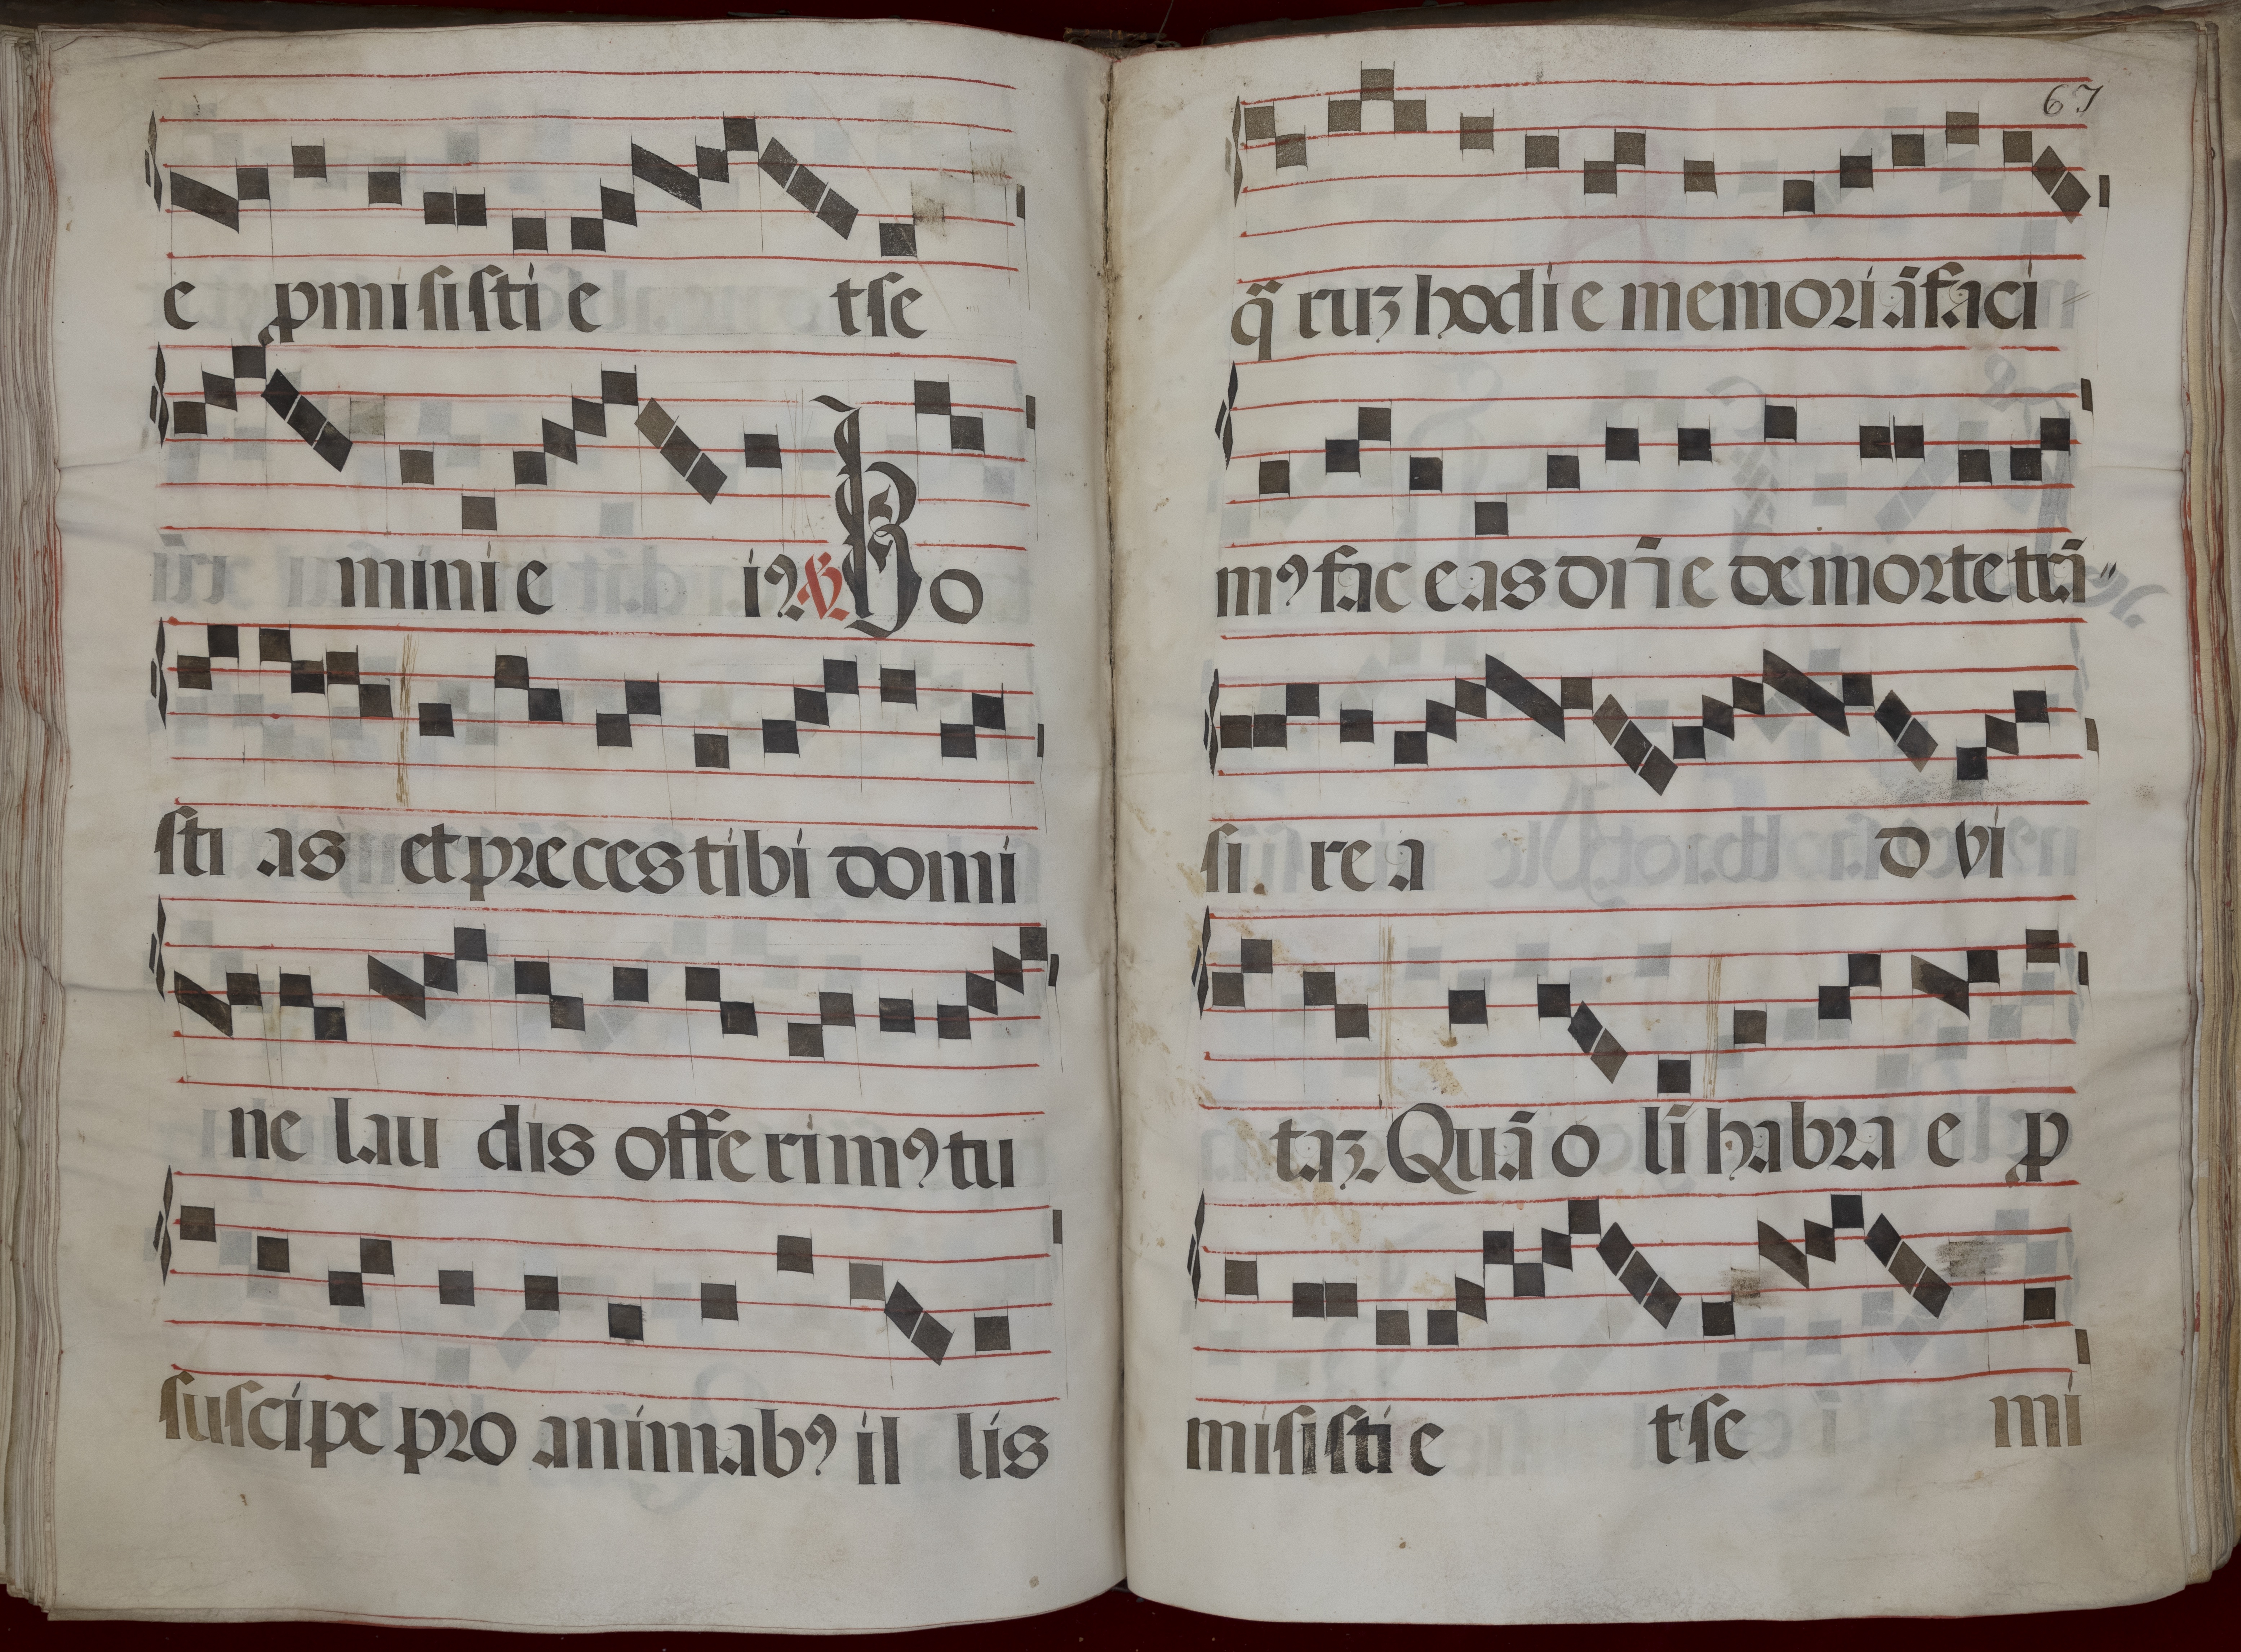 e ꝓmisisti e t se
mini e iꝰ ℣ Ho
sti as et preces tibi domi
ne lau dis offerimꝰ tu
suscipe pro animabꝰ il lis
67
q̃ruꝫ hodie memoriã faci
mꝰ fac eas dñe de morte trã
si re a d vi
taꝫ Quã o lĩ habra e ꝓ
misisti e t se mi